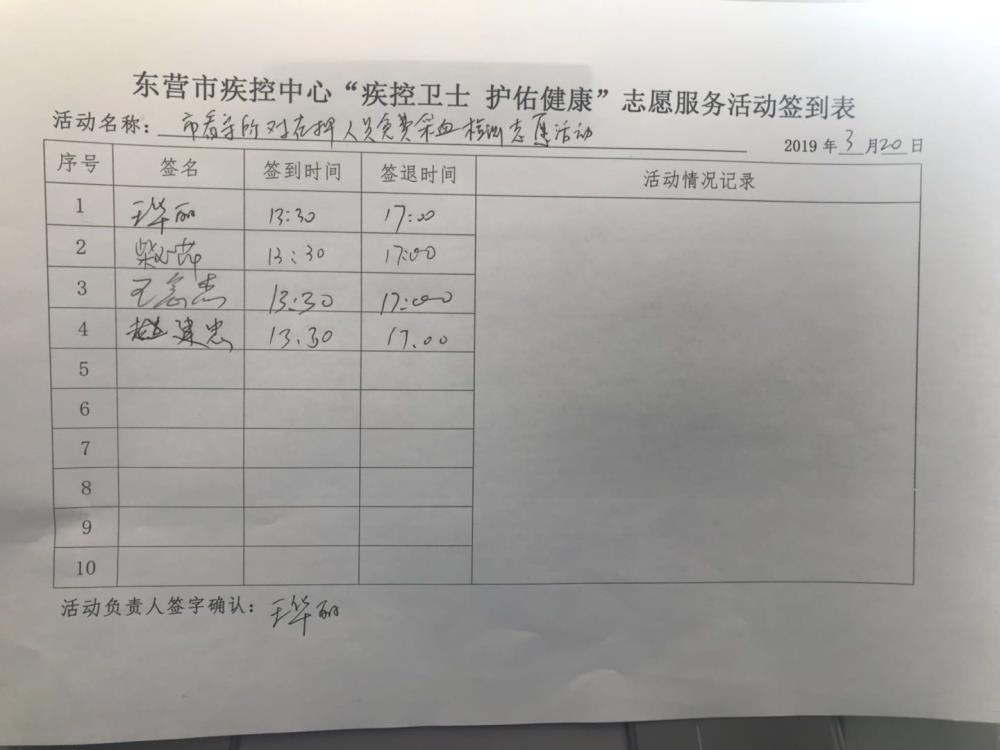 东营市疾控中心“疾控卫士 护佑健康”志愿服务活动签到表
活动名称：市看守所对在押人员免费采血检测志愿活动
2019年3月20日
序号 签名 签到时间 签退时间 活动情况记录
1 王华丽 13:30 17:00
2 13:30 17:00
3 13:30 17:00
4 赵建忠 13.30 17.00
5
6
7
8
9
10
活动负责人签字确认：王华丽